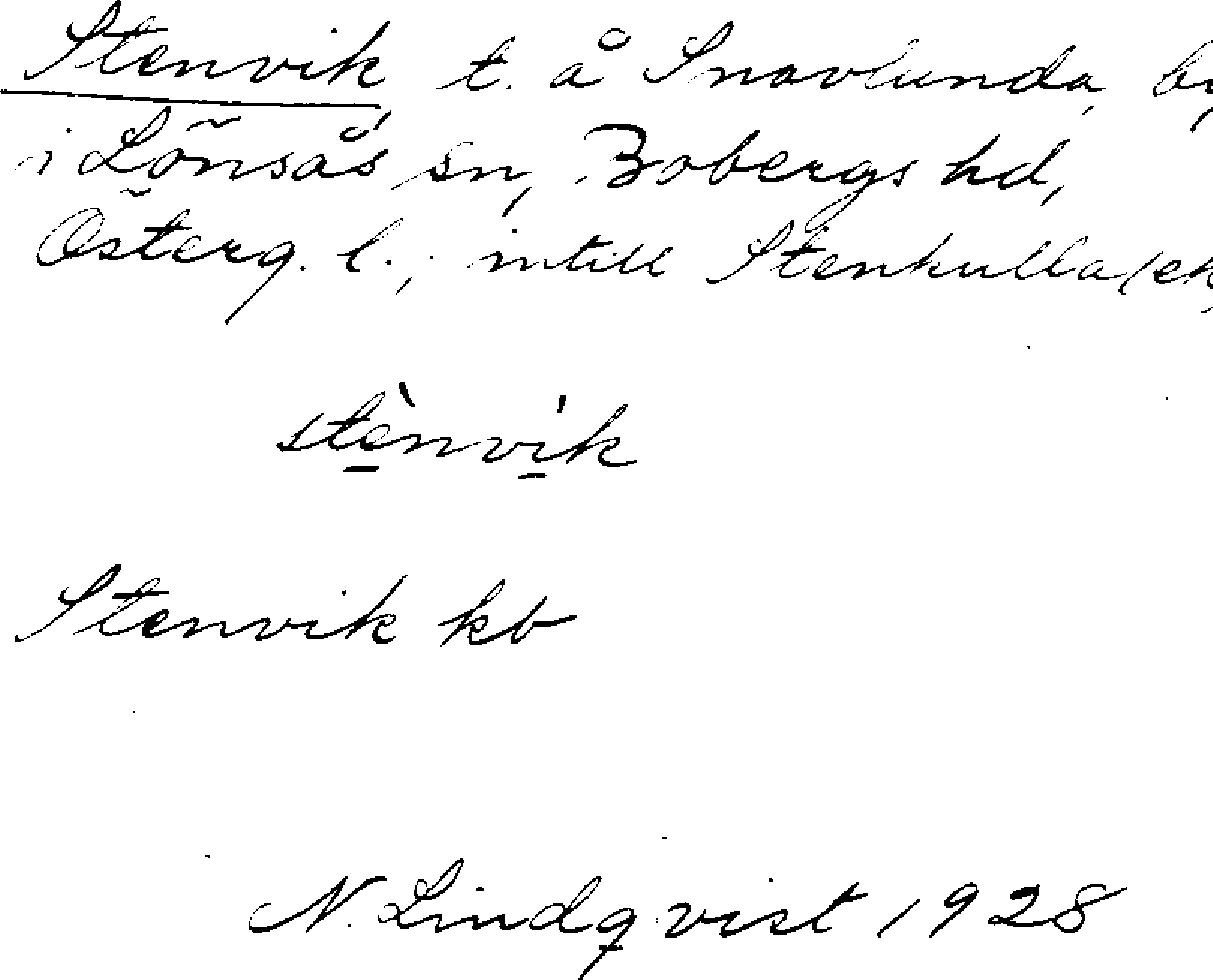 Stenvik, t. å Snavlunda, by
i Lönsås sn, Bobergs hd,
Österg. l., intill Stenkulla (ek
stènvík
Stenvik kb
N. Lindqvist 1928